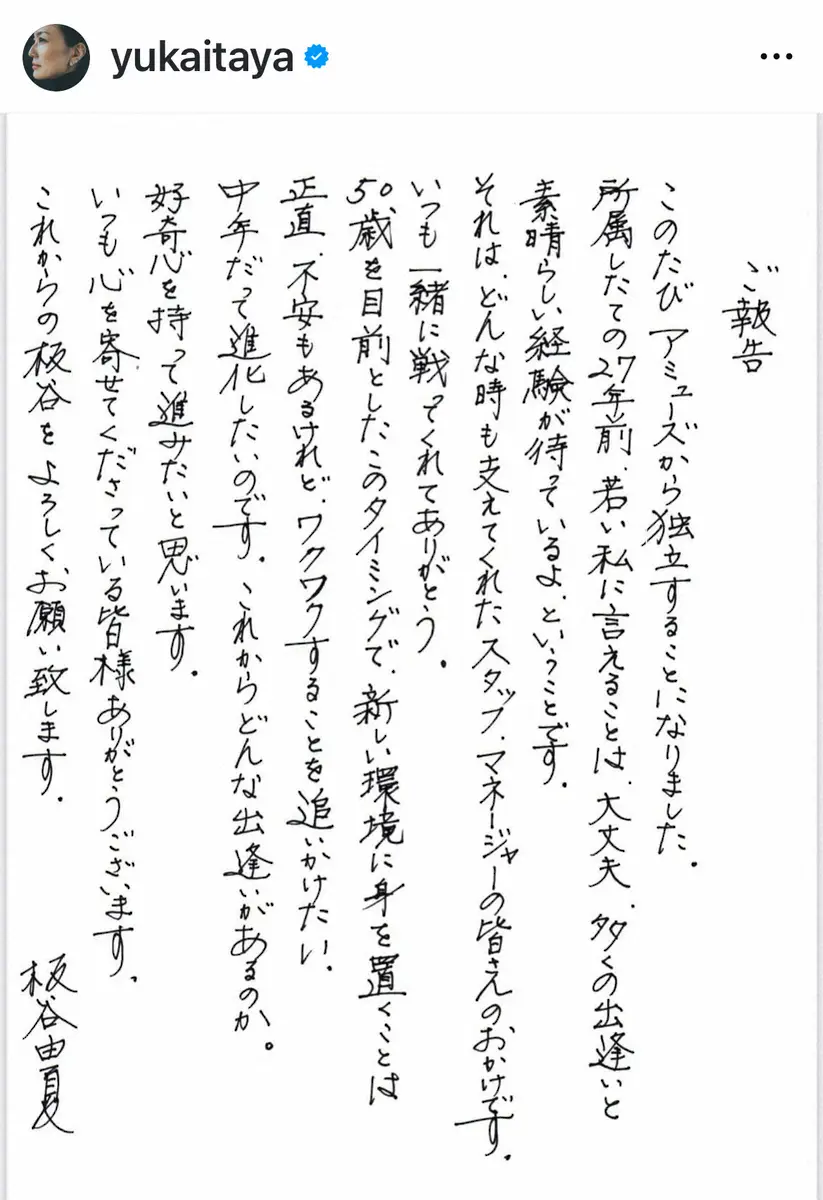 yukaitaya
ご報告
このたび アミューズから独立することになりました.
所属したての27年前、若い私に言えることは、大丈夫、多くの出逢いと
素晴らしい経験が待っているよ、ということです.
それは、どんな時も支えてくれたスタッフ、マネージャーの皆さんのおかげです.
いつも一緒に戦ってくれてありがとう.
50歳を目前としたこのタイミングで、新しい環境に身を置くことは
正直、不安もあるけれど、ワクワクすることを追いかけたい.
中年だって進化したいのです. これからどんな出逢いがあるのか。
好奇心を持って進みたいと思います.
いつも心を寄せてくださっている皆様ありがとうございます.
これからの板谷をよろしくお願い致します.
板谷由夏